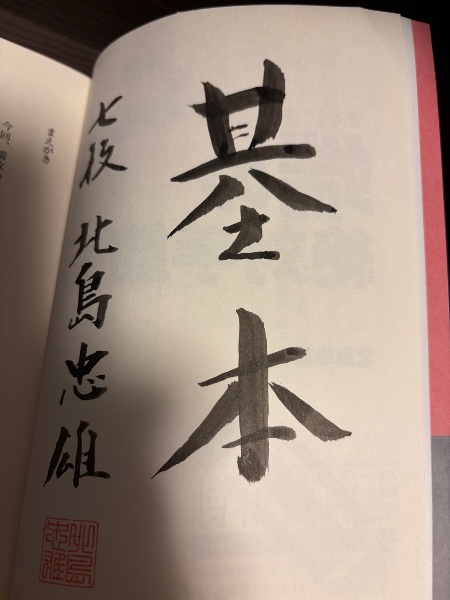 基本
七段 北島忠雄
北島
忠雄
まえがき